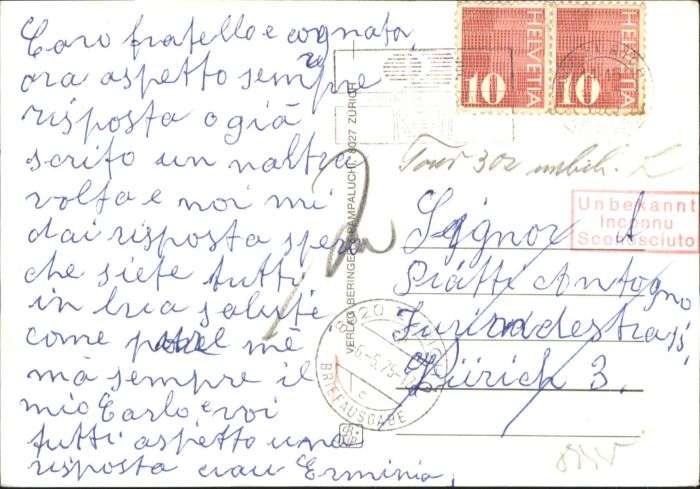 Caro fratello e cognata,
ora aspetto sempre
risposta o già
scrito un naltra
volta e noi mi
dai risposta spero
che siete tutti
in bua salute
come me
mà sempre il
mio Carlo e voi
tutti aspetto una
risposta ciau Erminia,
HELVETIA 10
HELVETIA 10
VERLAG BERINGER & PAMPALUCHI, 8027 ZÜRICH
Tour 302 unbek.
Unbekannt
Inconnu
Sconosciuto
Signor A
Piatti Antogno
Zürich 3.
BRIEFAUSGABE